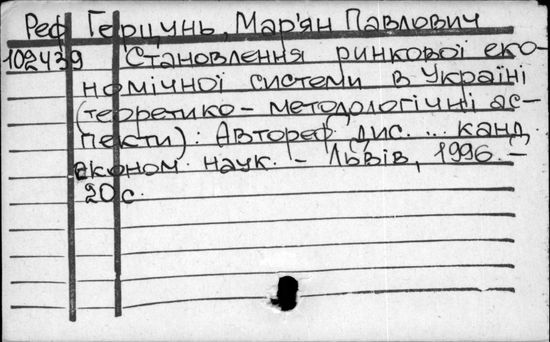 Реф Герцунь, Мар'ян Павлович
102439 Становлення ринкової еко-
номічної системи в Україні
(теоретико-методологічні ас-
пекти): Автореф дис. ... канд
економ. наук. - Львів, 1996.-
20 с.